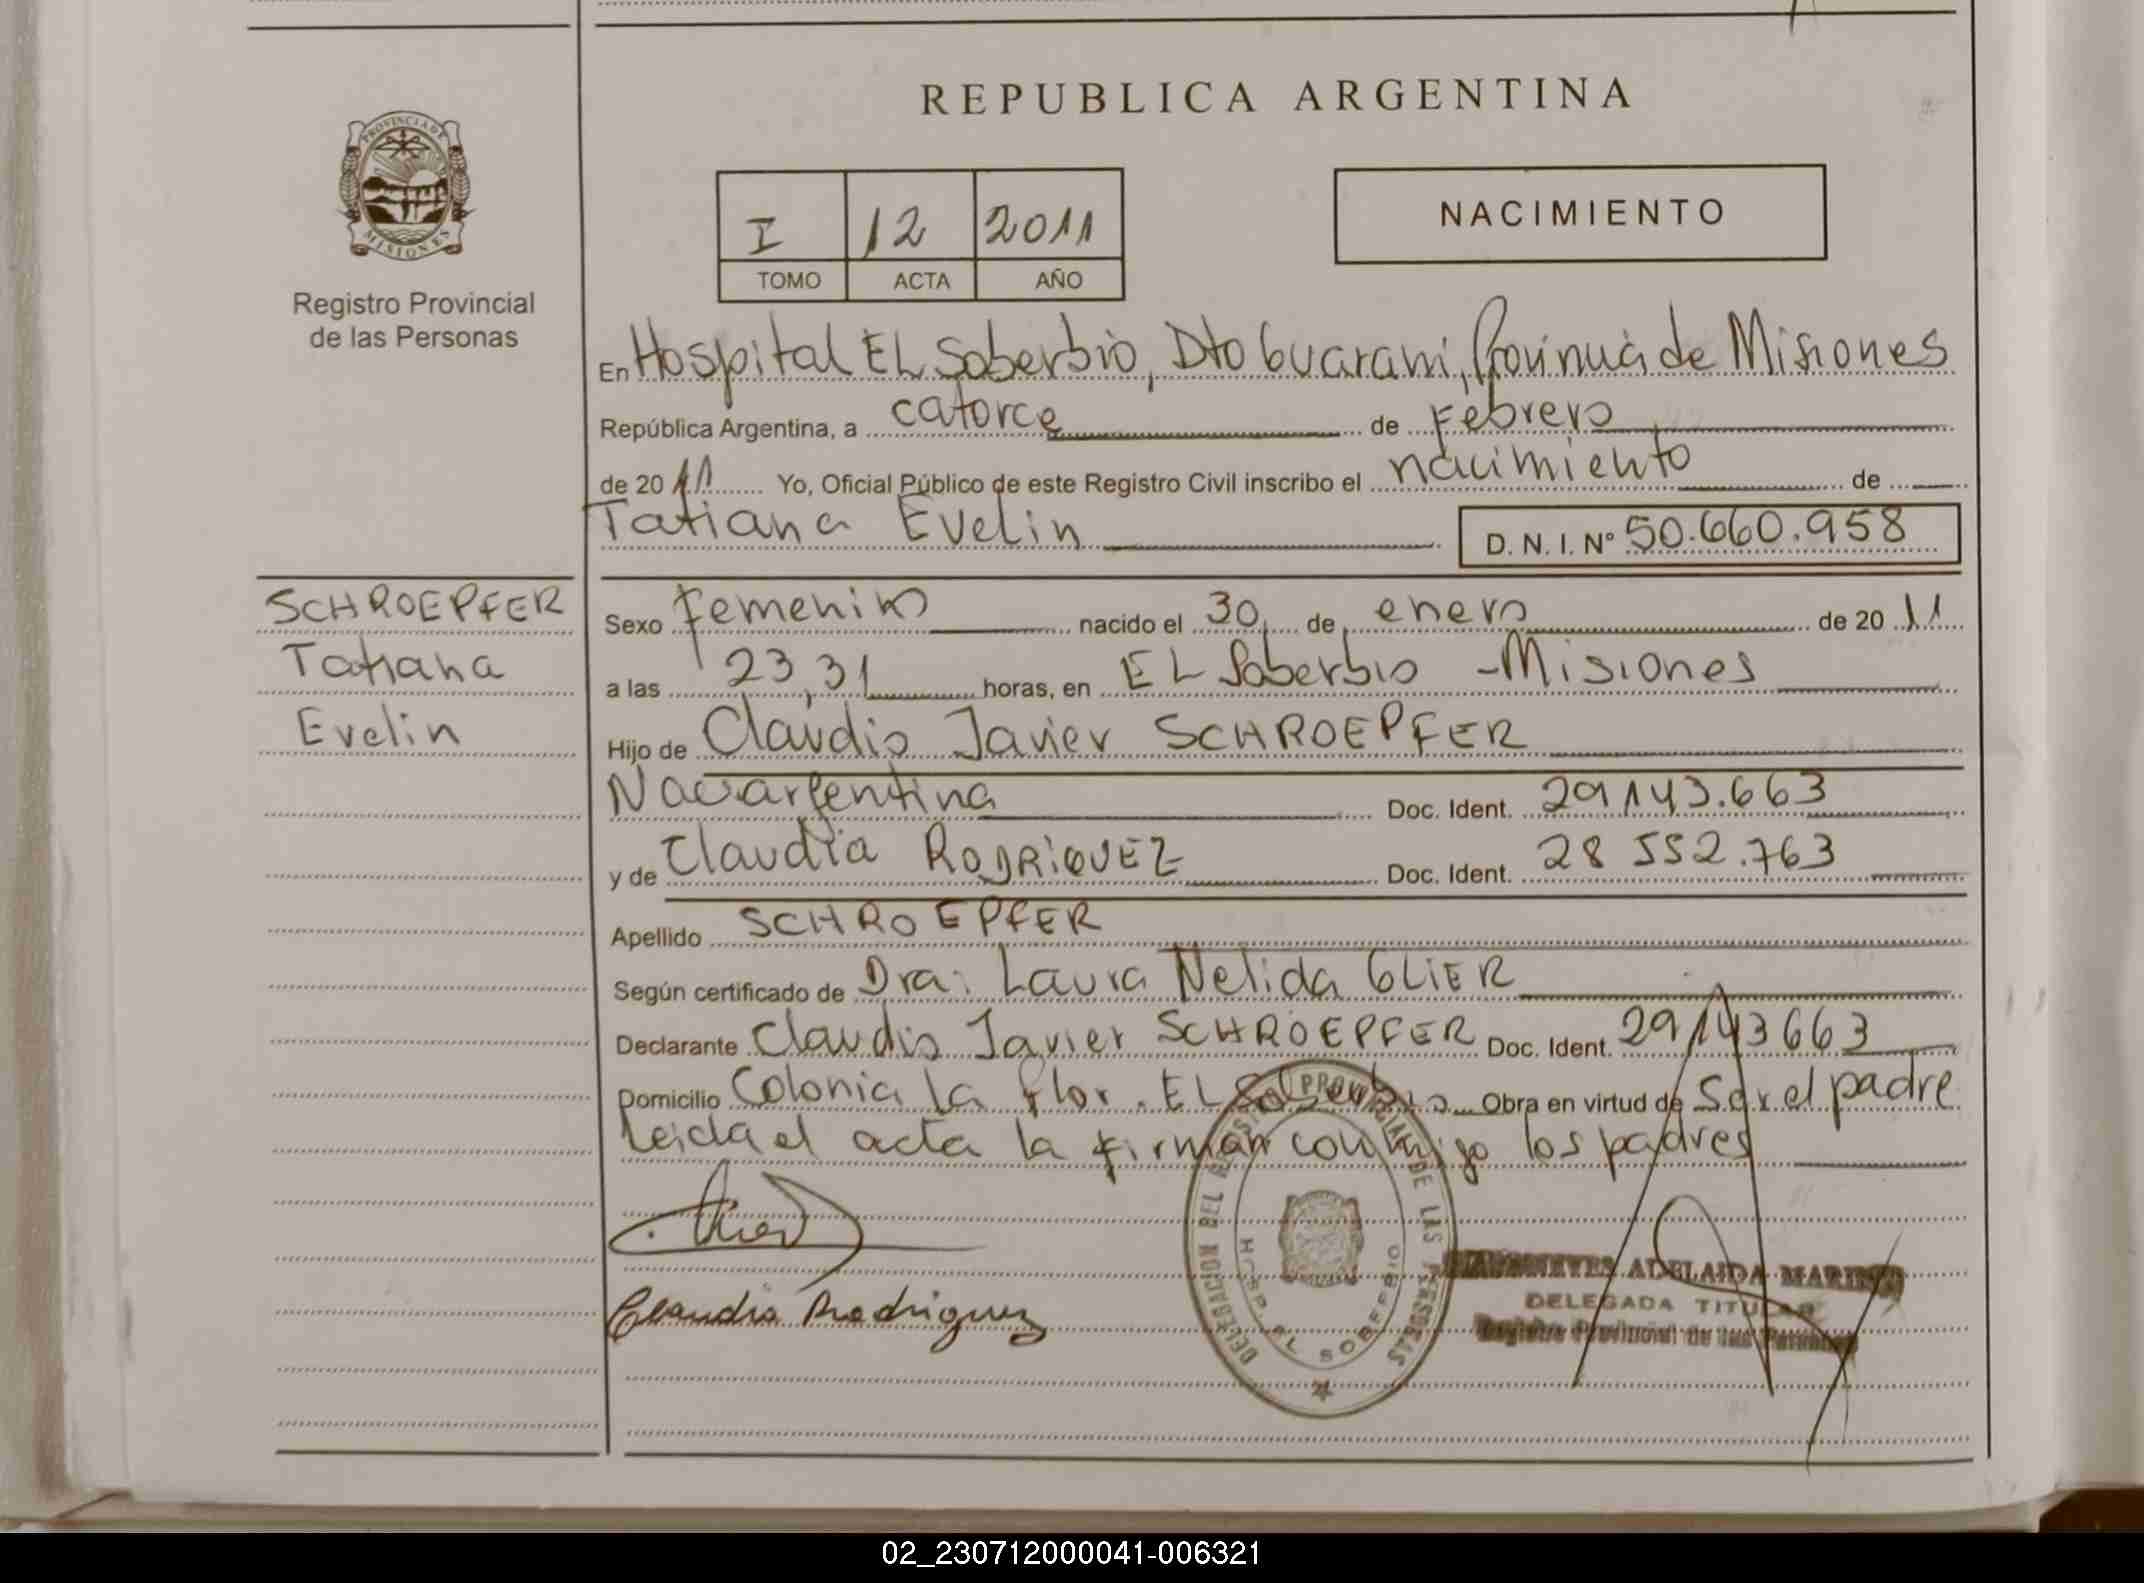 REPUBLICA ARGENTINA
PROVINCIA DE
MISIONES
Registro Provincial
de las Personas
I 12 2011
TOMO ACTA AÑO
NACIMIENTO
En Hospital EL Soberbio, Dto Guarani, Provincia de Misiones
República Argentina, a catorce de Febrero
de 2011 Yo, Oficial Público de este Registro Civil inscribo el nacimiento de
Tatiana Evelin D. N. I. Nº 50.660.958
SCHROEPFER
Tatiana
Evelin
Sexo Femenino nacido el 30 de enero de 2011
a las 23,31 horas, en EL Soberbio - Misiones
Hijo de Claudio Javier SCHROEPFER
Nac. argentina Doc. Ident. 29143.663
y de Claudia RODRIQUEZ Doc. Ident. 28 552.763
Apellido SCHROEPFER
Según certificado de Dra: Laura Nelida GLIER
Declarante Claudio Javier SCHROEPFER Doc. Ident. 29143663
Domicilio Colonia La Flor. EL Soberbio Obra en virtud de Ser el padre
leida el acta la firman conmigo los padres
Claudia Rodriguez
DELEGACION DEL REGISTRO PROVINCIAL DE LAS PERSONAS
HOSP. EL SOBERBIO
ADELAIDA
DELEGADA TITULAR
Registro Provincial de las Personas
02_230712000041-006321